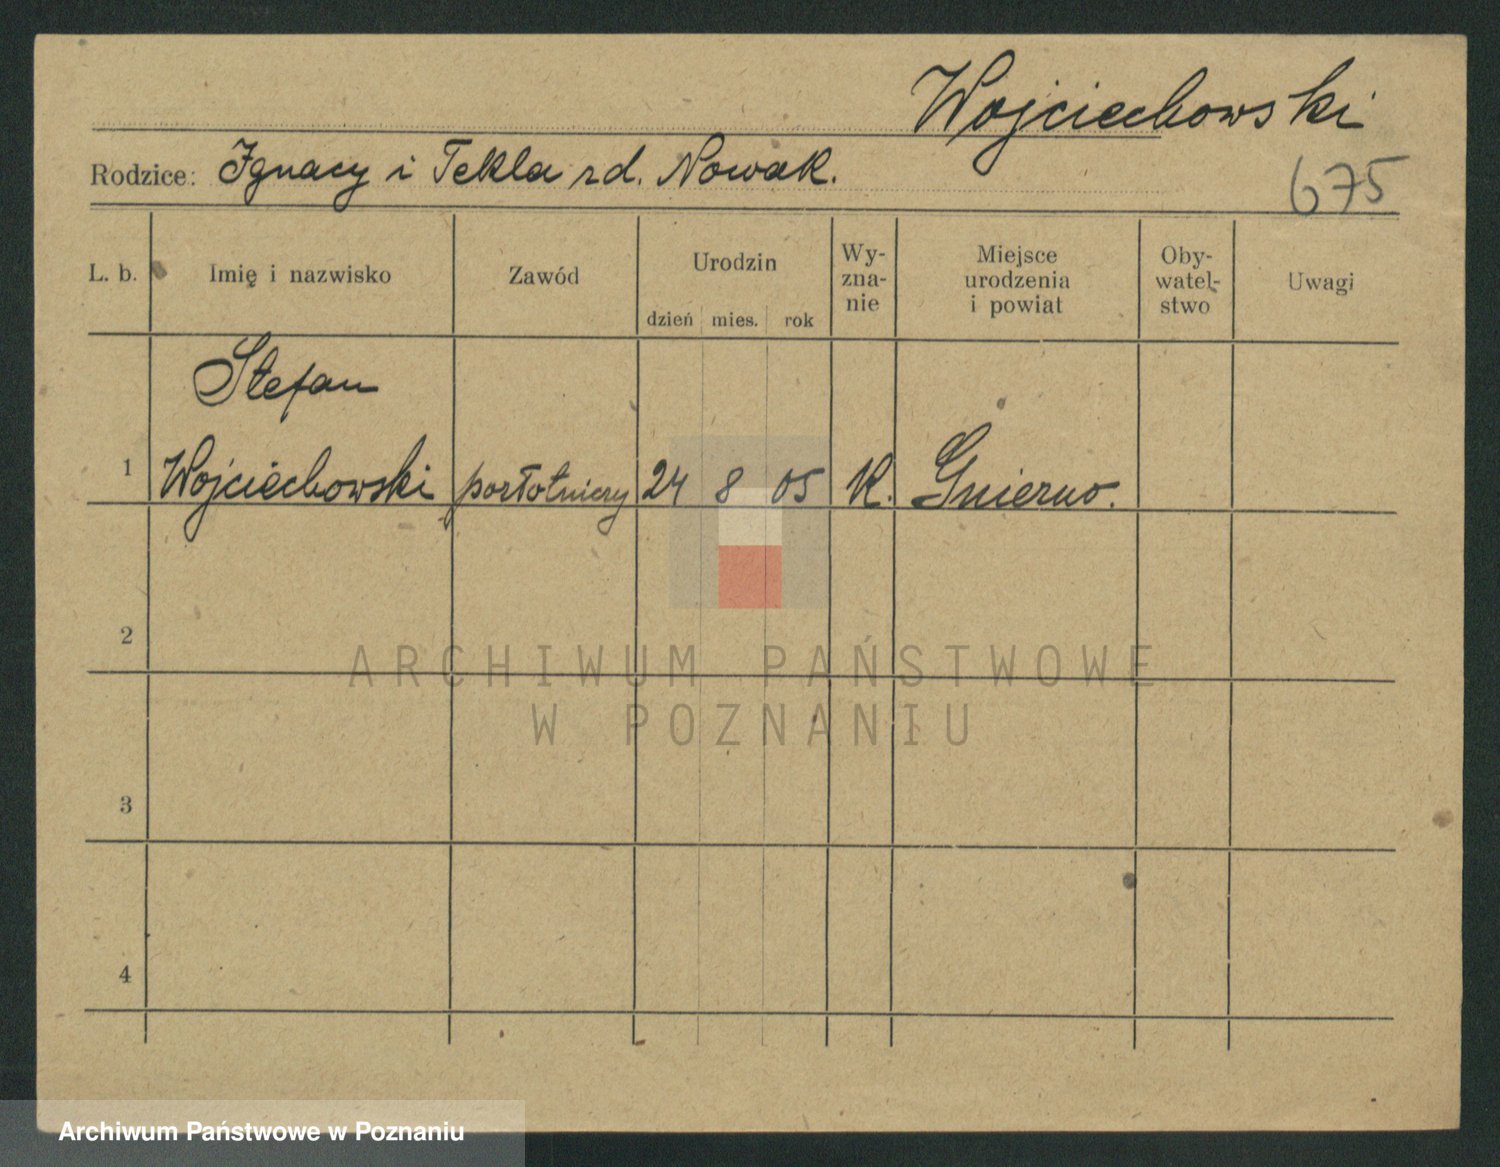 Wojciechowski
Rodzice: Ignacy i Tekla rd. Nowak.
675
L. b. Imię i nazwisko Zawód Urodzin dzień mies. rok Wy-zna-nie Miejsce urodzenia i powiat Oby-watel-stwo Uwagi
Stefan
1 Wojciechowski 24 8 05 K. Gniezno.
2
ARCHIWUM PAŃSTWOWE
W POZNANIU
3
4
Archiwum Państwowe w Poznaniu